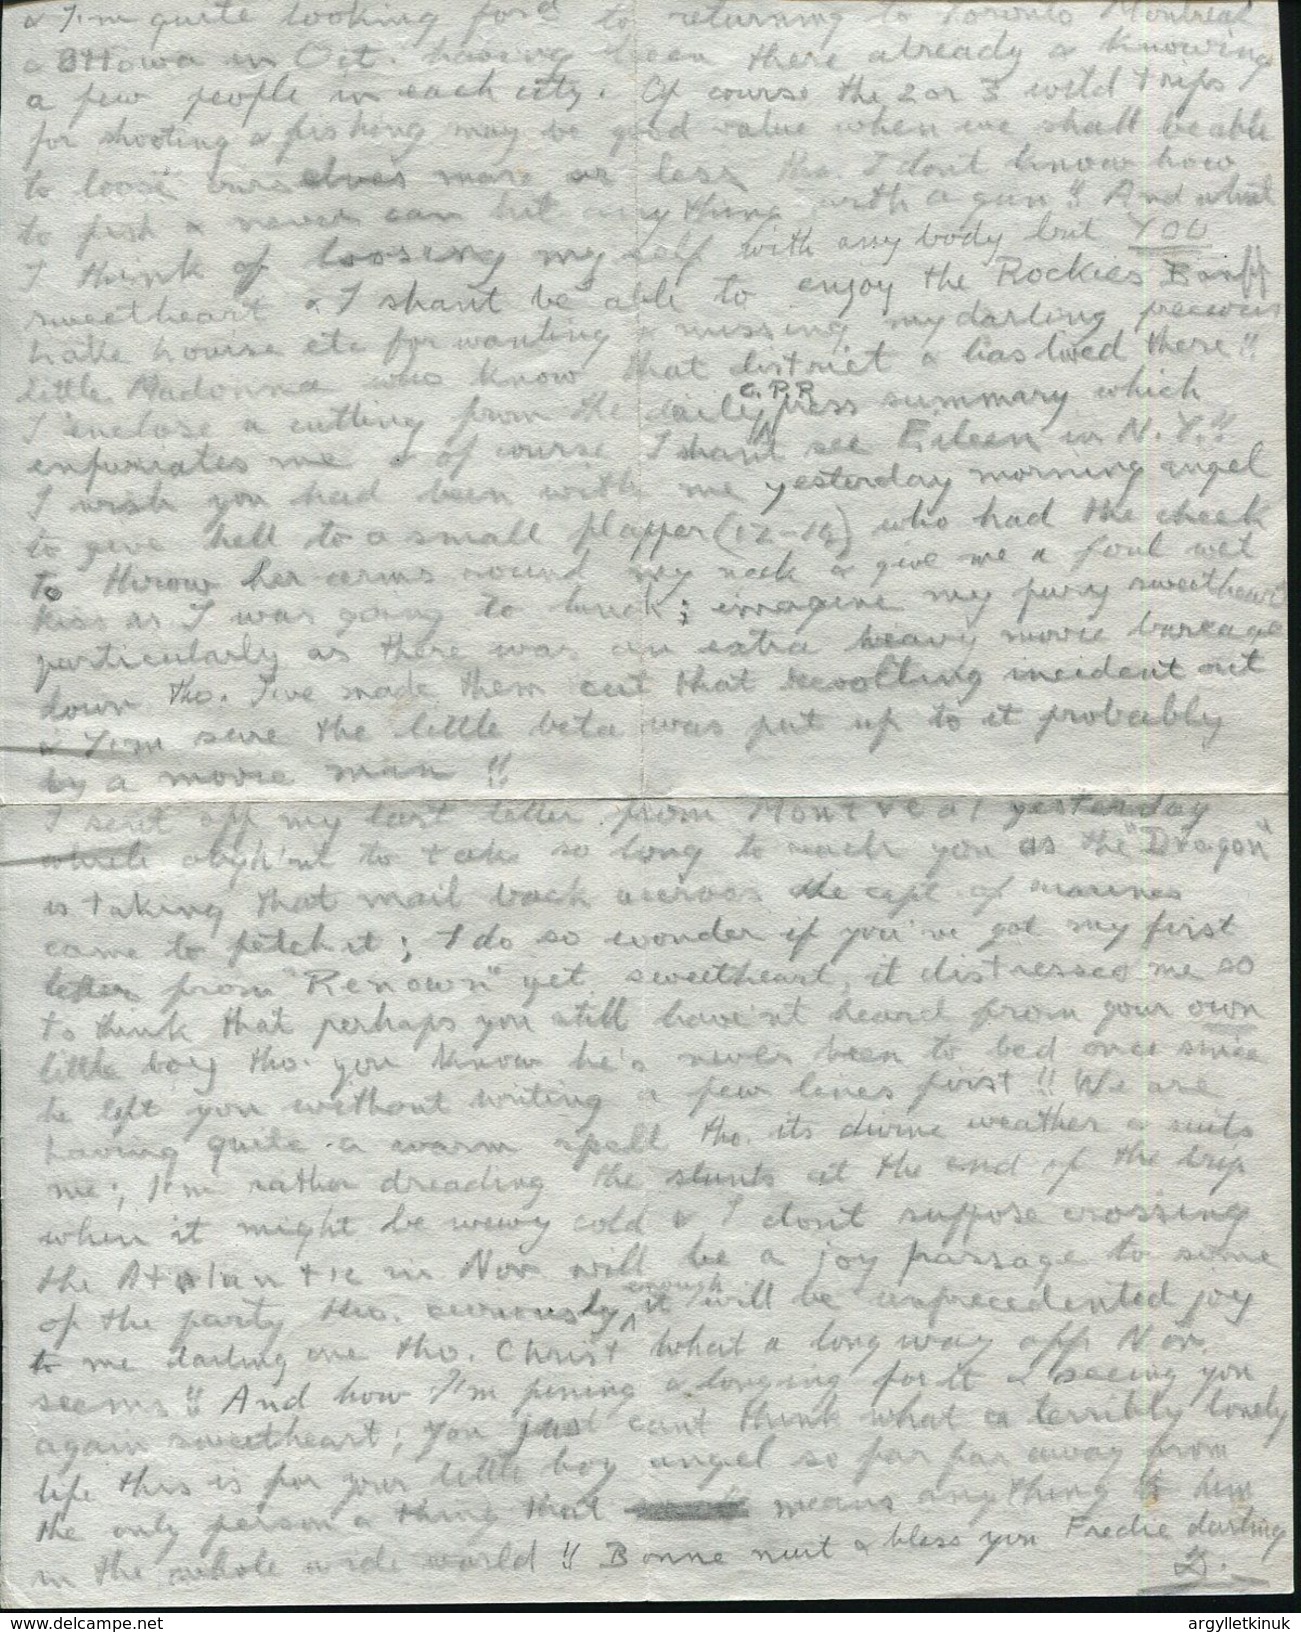 & I'm quite looking ford to returning to Toronto Montreal
& Ottowa in Oct. having been there already & knowing
a few people in each city. Of course the 2 or 3 wild trips
for shooting & fishing may be good value when we shall be able
to loose ourselves more or less tho. I don't know how
to fish & never can hit anything with a gun!! And what
I think of loosing myself with any body but YOU
sweetheart & I shan't be able to enjoy the Rockies Banff
Lake Louise etc for wanting & missing my darling precious
little Madonna who know that district & has lived there!!
I enclose a cutting from the daily C.P.R press summary which
enfuriates me & of course I shan't see Eileen in N.Y.!!
I wish you had been with me yesterday morning angel
to give hell to a small flapper (12-14) who had the cheek
to throw her arms round my neck & give me a foul wet
kiss as I was going to truck; imagine my fury sweetheart
particularly as there was an extra heavy movie barrage
down tho. I've made them cut that revolting incident out
& I'm sure the little beta was put up to it probably
by a movie man!!
I sent off my last letter from Montreal yesterday
which ough'nt to take so long to reach you as the "Dragon"
is taking that mail back accross the capt. of marines
came to fetch it; I do so wonder if you've got my first
letter from "Renown" yet sweetheart, it distresses me so
to think that perhaps you still have'nt heard from your own
little boy tho. you know he's never been to bed once since
he left you without writing a few lines first!! We are
having quite a warm spell tho. its divine weather & suits
me; I'm rather dreading the stunts at the end of the trip
when it might be wewy cold & I don't suppose crossing
the Atalantic in Nov will be a joy passage to some
of the party tho. curiously enough it will be unprecedented joy
to me darling one tho. Christ what a long way off Nov.
seems!! And how I'm pining & longing for it & seeing you
again sweetheart; you just can't think what a terribly lonely
life this is for your little boy angel so far far away from
the only person & thing that means anything to him
in the whole wide world!! Bonne nuit & bless you Fredie darling
D.
delcampe.net
argylletkinuk